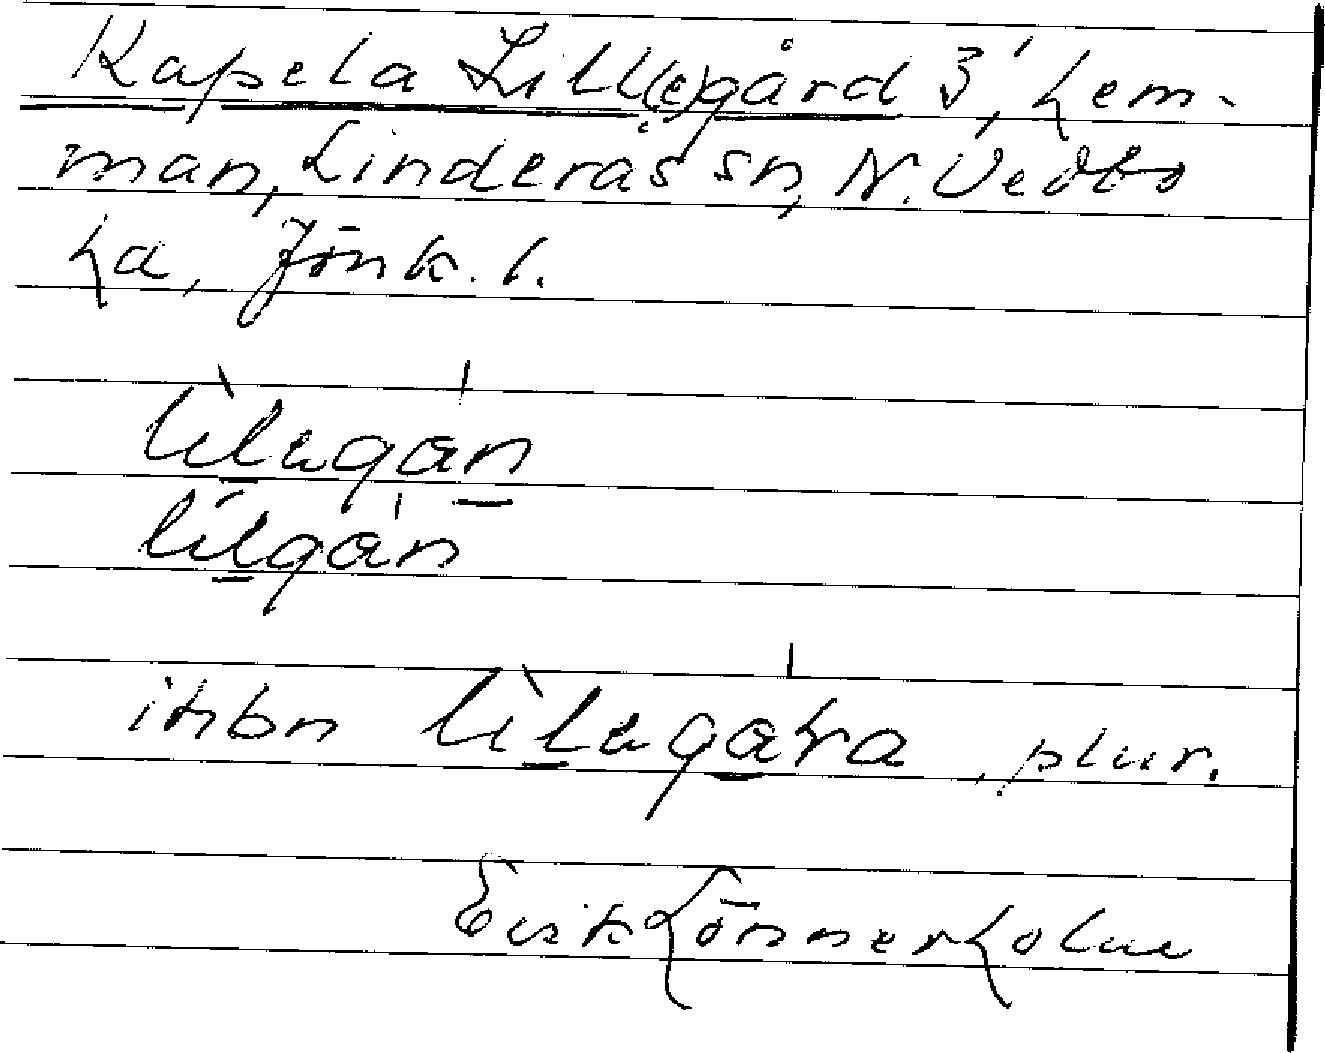 Kapela Lill(e)gård 3', hem-
man, Linderås sn, N. Vedbo
hd, Jönk. l.
lilegán
lilgán
inbn lilegåra, plur.
Erik Lönnerholm